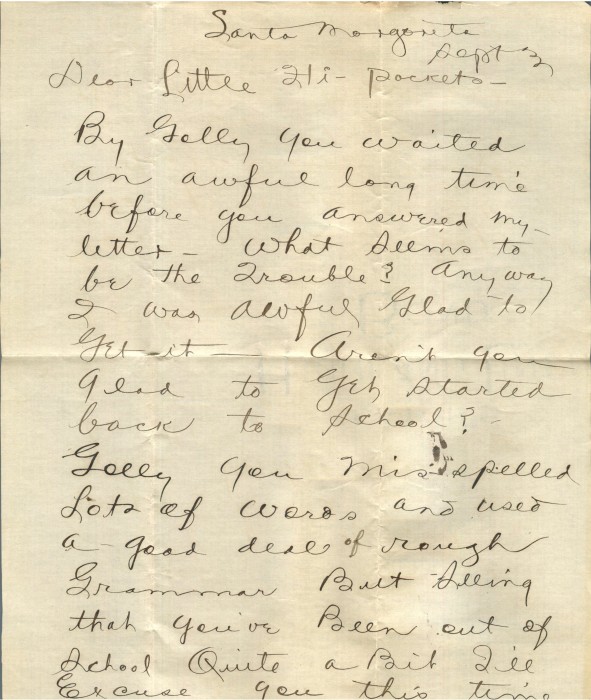 Santa Margareta
Sept 2
Dear Little Hi-Pockets-
By Golly you waited
an awful long time
before you answered my
letter - What seems to
be the Trouble? Anyway
I was awful Glad to
Get it - Aren't you
glad to Get started
back to School?
Golly you misspelled
Lots of words and used
a good deal of rough
Grammar But Seeing
that you've Been out of
School Quite a Bit I'll
Excuse you this time